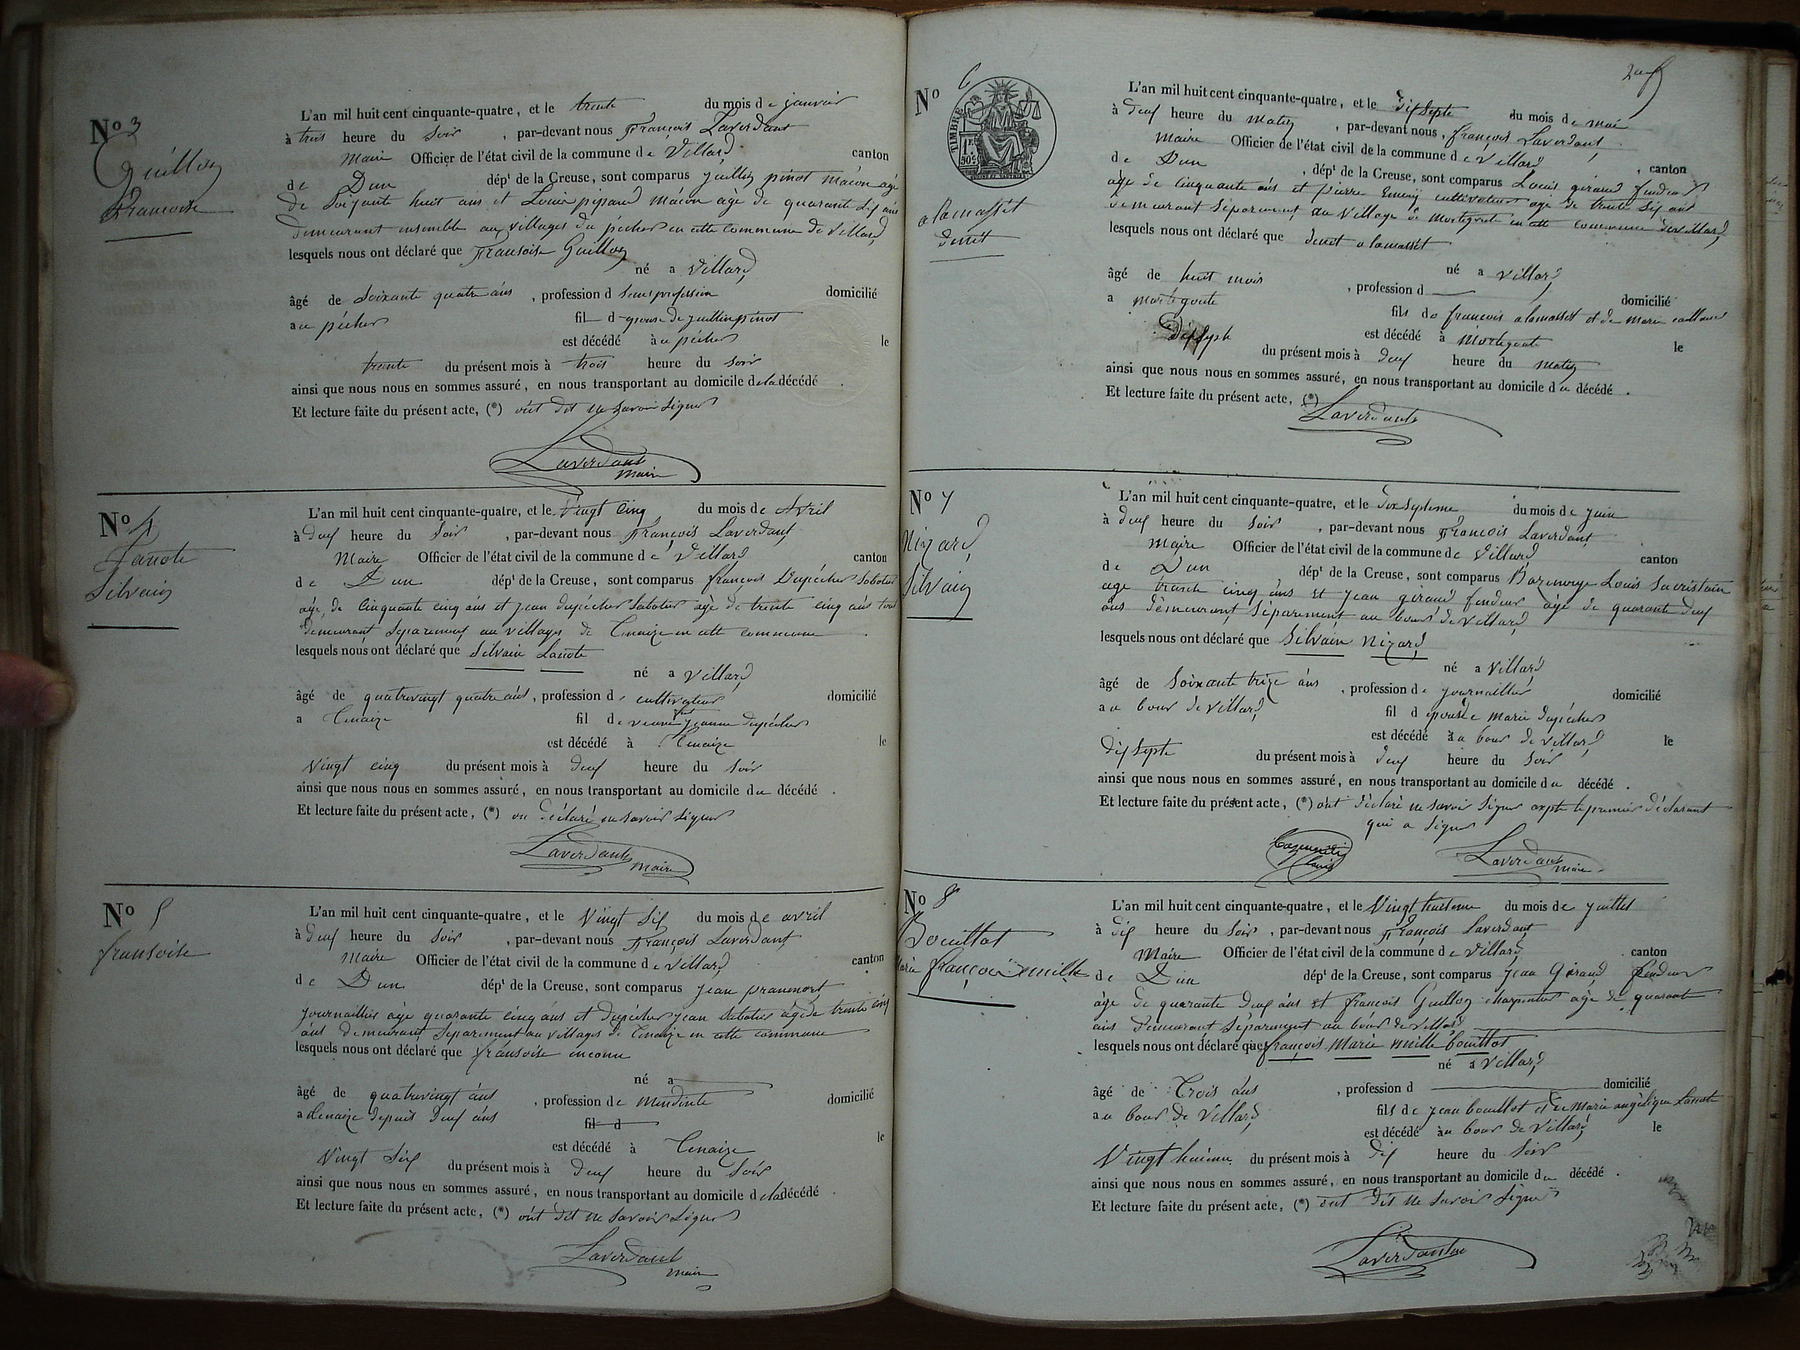 No 3
Guillon
Francoise
L'an mil huit cent cinquante-quatre, et le trente du mois de janvier
à trois heure du Soir, par-devant nous François Laverdant
Maire Officier de l'état civil de la commune de Villard canton
de Dun dépt de la Creuse, sont comparus juillin pinot macon agé
de Soixante huit ans et Louis pipaud macon àge de quarante six ans
demeurant ensemble au villages du pécher en cette commune de Villard
lesquels nous ont déclaré que Fransoise Guillon
né a Villard
âgé de Soixante quatre ans, profession d Sens profession domicilié
au pécher fil d epouse de juillin pinot
est décédé à au pécher le
trente du présent mois à trois heure du Soir
ainsi que nous nous en sommes assuré, en nous transportant au domicile de la décédé.
Et lecture faite du présent acte, (*) ont dit ne Savoir Signer
Laverdant
maire
No 4
Lanote
Silvain
L'an mil huit cent cinquante-quatre, et le Vingt cinq du mois de Avril
à deux heure du Soir, par-devant nous François Laverdant
Maire Officier de l'état civil de la commune de Villard canton
de Dun dépt de la Creuse, sont comparus françois Dupécher Sabotier
age de Cinquante cinq ans et jean dupécher Sabotier age de trente cinq ans tous
demeurant Séparement au villages de Cenaize en cette commune
lesquels nous ont déclaré que Silvain Lanote
né a Villard
âgé de quatrevingt quatre ans, profession de cultivateur domicilié
a Cenaize fil de veuve jeanne dupécher
est décédé à Cenaize le
Vingt cinq du présent mois à deux heure du Soir
ainsi que nous nous en sommes assuré, en nous transportant au domicile du décédé.
Et lecture faite du présent acte, (*) on déclaré ne Savoir Signer
Laverdant
maire
No 5
fransoise
L'an mil huit cent cinquante-quatre, et le Vingt Six du mois de avril
à deux heure du Soir, par-devant nous François Laverdant
Maire Officier de l'état civil de la commune de Villard canton
de Dun dépt de la Creuse, sont comparus jean
journallier age quarante cinq ans et dupécher jean Sabotier age de trente cinq
ans demeurant Separement au villages de Cenaize en cette commune
lesquels nous ont déclaré que fransoise inconu
né a
âgé de quatrevingt ans, profession de Mendiente domicilié
a Cenaize depuis Deux ans fil d
est décédé à Cenaize le
Vingt Six du présent mois à deux heure du Soir
ainsi que nous nous en sommes assuré, en nous transportant au domicile de la décédé
Et lecture faite du présent acte, (*) ont dit ne Savoir Signer
Laverdant
maire
No 6
TIMBRE
alamasset
denet
L'an mil huit cent cinquante-quatre, et le dix Septe du mois de mai
à deux heure du matin, par-devant nous, françois Laverdant
Maire Officier de l'état civil de la commune de Villard, canton
de Dun, dépt de la Creuse, sont comparus Louis giraud fendeur
age de cinquante ans et pierre cultivateur age de trente Six ans
demeurant Séparement au Village de en cette commune de Villard
lesquels nous ont déclaré que denet alamasset
né a Villard
âgé de huit mois, profession d domicilié
a mortegoute fils de françois alamasset et de marie
est décédé à Mortegoute le
Dix Septe du présent mois à deux heure du matin
ainsi que nous nous en sommes assuré, en nous transportant au domicile du décédé.
Et lecture faite du présent acte, (*)
Laverdant
No 7
Nizard
Silvain
L'an mil huit cent cinquante-quatre, et le dixseptieme du mois de juin
à deux heure du Soir, par-devant nous François Laverdant
Maire Officier de l'état civil de la commune de Villard canton
de Dun dépt de la Creuse, sont comparus Louis Sacristain
age trente cinq ans et jean giraud fendeur age de quarante deux
ans demeurant Séparement au bour de Villard
lesquels nous ont déclaré que Silvain Nizard
né a Villard
âgé de Soixante treize ans, profession de journallier domicilié
au bour de Villard fil d epouse de marie dupécher
est décédé à au bour de Villard le
dix Septe du présent mois à deux heure du Soir
ainsi que nous nous en sommes assuré, en nous transportant au domicile du décédé.
Et lecture faite du présent acte, (*) ont déclaré ne Savoir Signer expte le premier déclarant
qui a Signer
Louis
Laverdant
maire
No 8
Bouillot
Marie françois émille
L'an mil huit cent cinquante-quatre, et le Vingt huitieme du mois de juillet
à dix heure du Soir, par-devant nous François Laverdant
Maire Officier de l'état civil de la commune de Villard canton
de Dun dépt de la Creuse, sont comparus jean Giraud fendeur
age de quarante deux ans et françois Guillon charpentier age de quarante
ans demeurant Séparement au bour de Villard
lesquels nous ont déclaré que françois Marie émille bouillot
né à Villard
âgé de Trois ans, profession d domicilié
au bour de Villard fils de jean bouillot et de Marie angélique Lanote
est décédé à au bour de Villard le
Vingt huitieme du présent mois à dix heure du Soir
ainsi que nous nous en sommes assuré, en nous transportant au domicile du décédé.
Et lecture faite du présent acte, (*) ont dit ne Savoir Signer
Laverdant